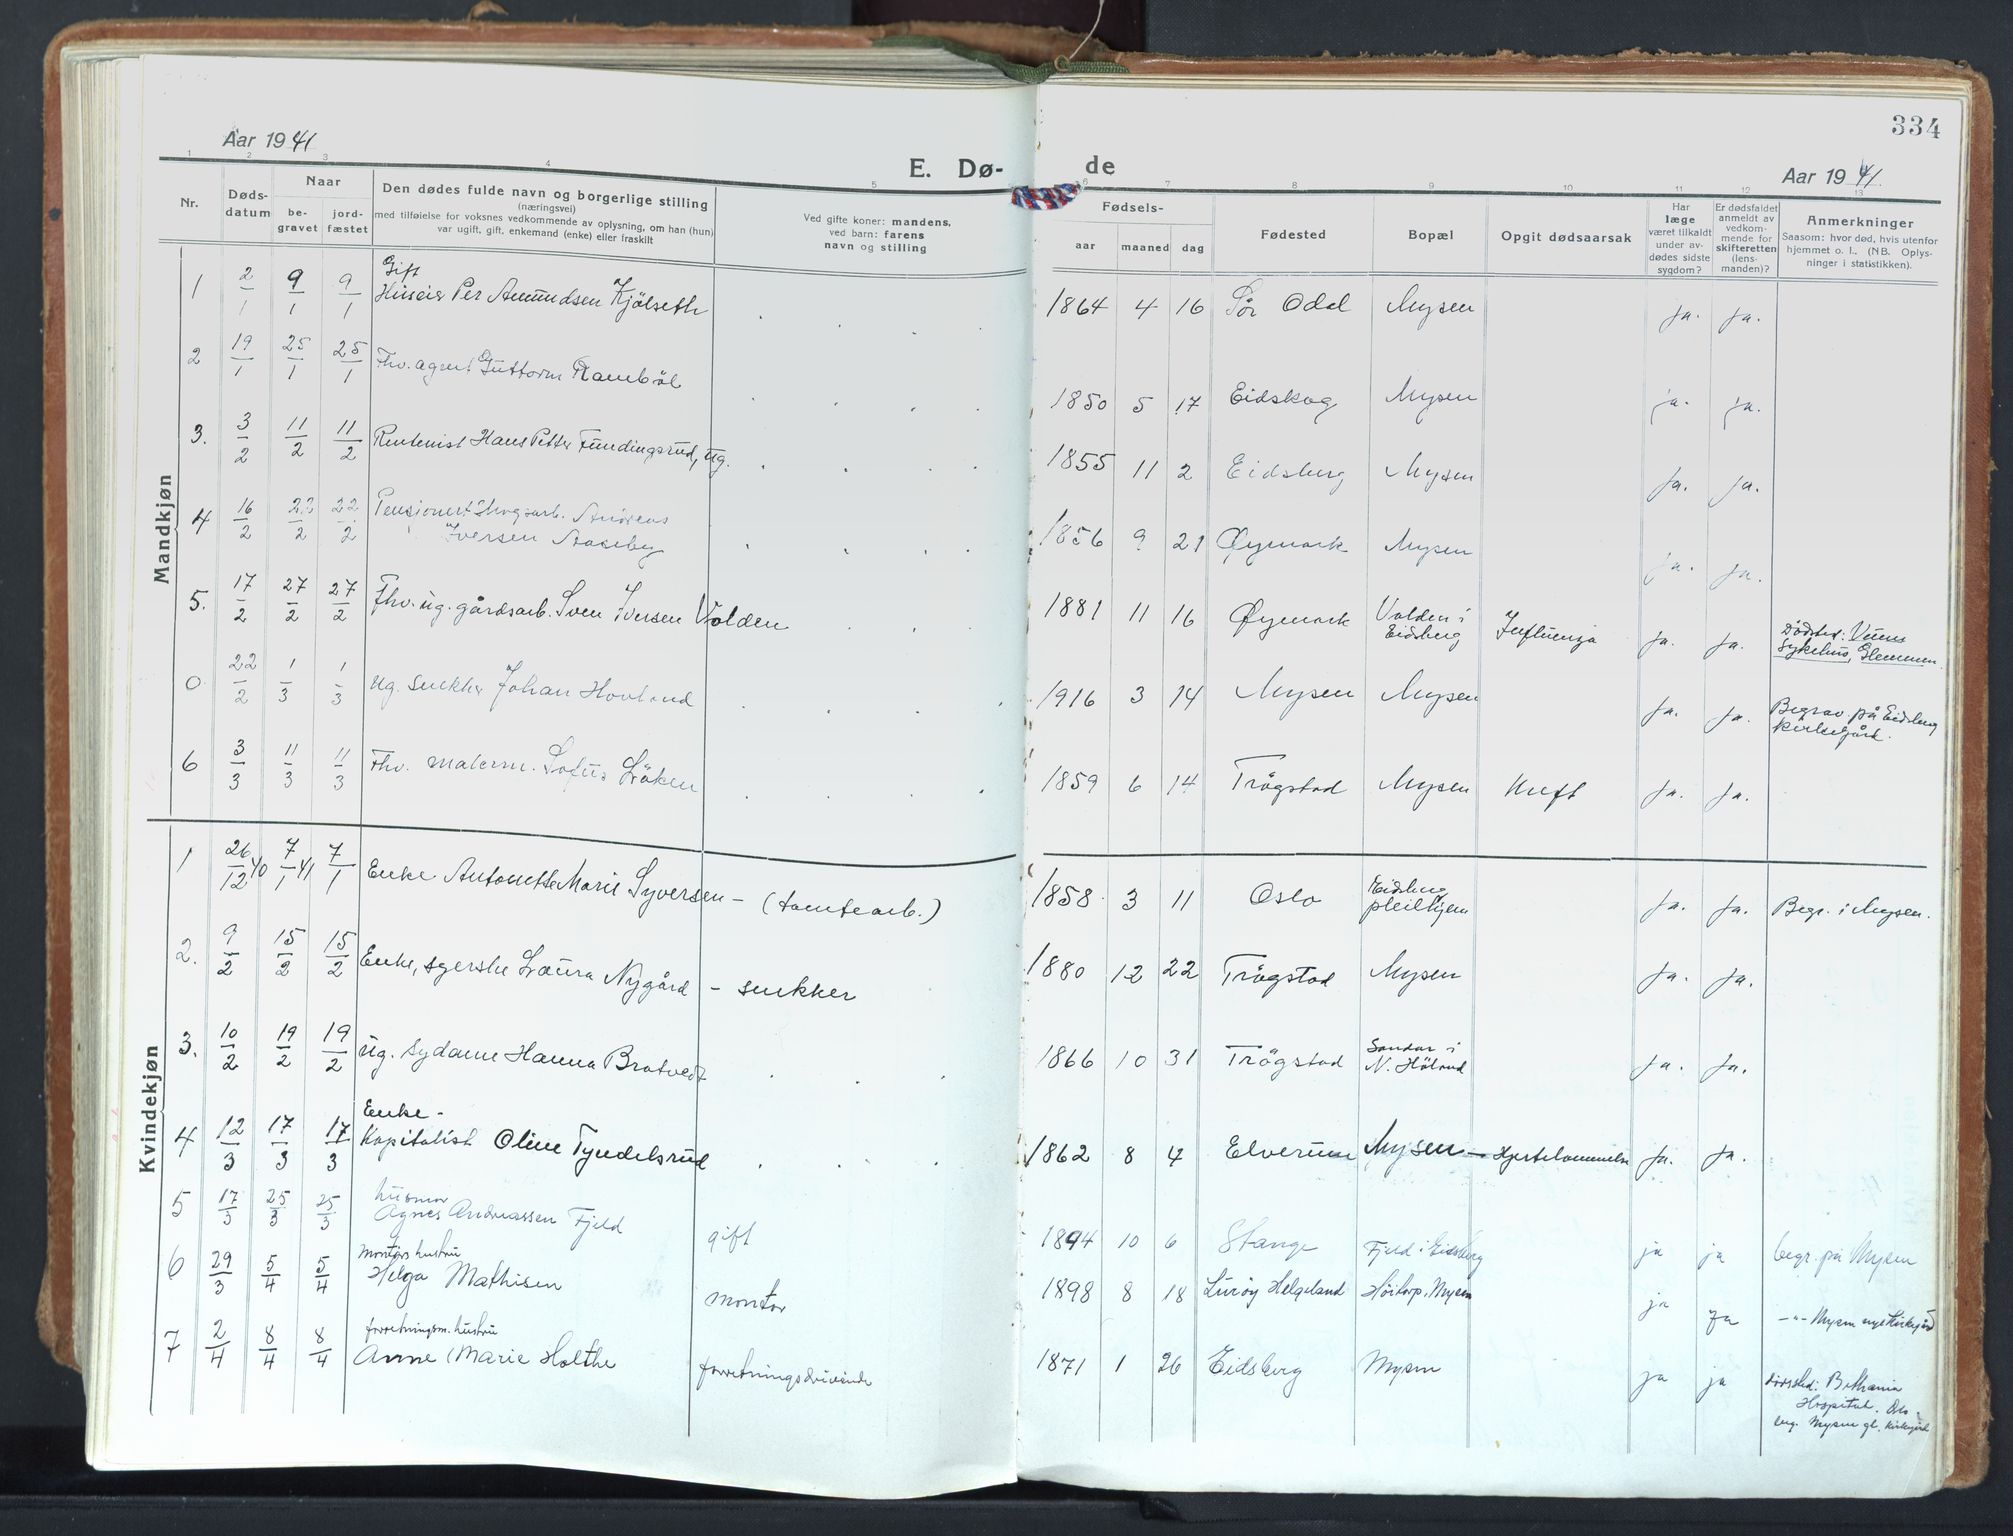 334
Aar 1941
E. Dø-
de
Aar 1941.
1 2 3 4 5 6 7 8 9 10 11 12 13
Nr.
Døds-
datum
Naar
be-
gravet
jord-
fæstet
Den dødes fulde navn og borgerlige stilling
(næringsvei)
med tilføielse for voksnes vedkommende av oplysning, om han (hun)
var ugift, gift, enkemand (enke) eller fraskilt
Ved gifte koner: mandens,
ved barn: farens
navn og stilling
Fødsels-
aar
maaned
dag
Fødested
Bopæl
Opgit dødsaarsak
Har
læge
været tilkaldt
under av-
dødes sidste
sygdom?
Er dødsfaldet
anmeldt av
vedkom-
mende for
skifteretten
(lens-
manden)?
Anmerkninger
Saasom: hvor død, hvis utenfor
hjemmet o. l., (NB. Oplys-
ninger i statistikken).
Mandkjøn
Gift
1 2/1 9/1 9/1 Huseier Per Amundsen Kjölseth 1864 4 16 Sör Odal Mysen ja. ja.
2 19/1 25/1 25/1 Fhv. agent Guttorm Ramböl 1850 5 17 Eidskog Mysen ja. ja.
3. 3/2 11/2 11/2 Rentenist Hans Petter Fundingsrud, ug. 1855 11 2 Eidsberg Mysen ja. ja.
4 16/2 22/2 22/2 Pensionert skogsarb. Andreas
Iversen Aaseby 1856 9 21 Øymark Mysen ja. ja.
5. 17/2 27/2 27/2 Fhv. ug. gårdsarb. Sven Iversen Volden 1881 11 16 Øymark Volden i
Eidsberg Influenza ja. ja. Dödsted:
Sykehus, Glemmen.
0 22/2 1/3 1/3 ug. snekker Johan Hovland 1916 3 14 Mysen Mysen ja. ja. Begrav på Eidsberg
Kirkegård.
6 3/3 11/3 11/3 Fhv. malerm. Sofus Löken 1859 6 14 Trögstad Mysen Kreft ja. ja.
Kvindekjøn
1 26/12 40 7/1 41 7/1 Enke Antonette Marie Syversen – (tomtearb.) 1858 3 11 Oslo Eidsberg
pleiehjem ja. ja. Begr. i Mysen.
2. 9/2 15/2 15/2 Enke, syerske Laura Nygård – snekker 1880 12 22 Trögstad Mysen ja. ja.
3. 10/2 19/2 19/2 ug. sydame Hanna Bratvedt 1866 10 31 Trögstad Sandar i
N. Höland ja. ja.
Enke -
4 12/3 17/3 17/3 Kapitalist Oline Tyndelsrud 1862 8 4 Elverum Mysen – Hjertelammelse ja. ja.
husmor
5 17/3 25/3 25/3 Agnes Andreassen Fjeld gift 1894 10 6 Stange Fjeld i Eidsberg ja ja begr. på Mysen
montörs hustru
6 29/3 5/4 5/4 Helga Mathisen montør 1898 8 18 Luröy Helgeland Höitorp, Mysen ja ja -"- Mysen nye Kirkegård
forretningsm. hustru
7 2/4 8/4 8/4 Anne Marie Holthe forretningsdrivende 1871 1 26 Eidsberg Mysen ja ja dödssted: Bethania
Hospital. Oslo
beg. Mysen gl. kirkegård